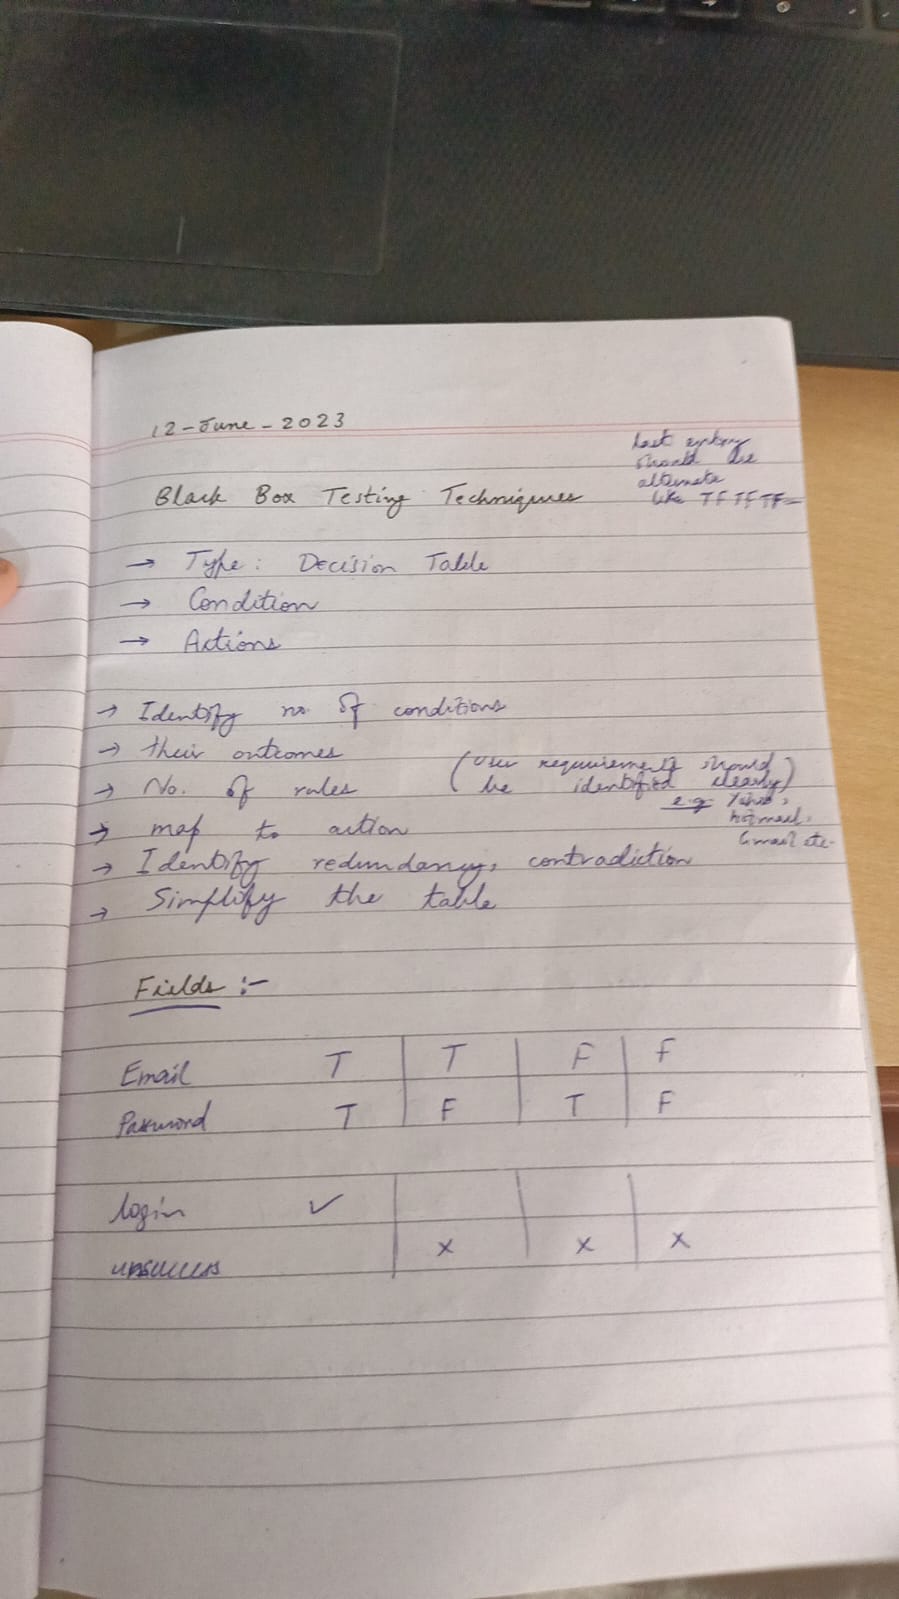 12-June-2023
last entry
should be
alternate
like TF TF TF
Black Box Testing Techniques
→ Type: Decision Table
→ Condition
→ Actions
→ Identify no. of conditions
→ their outcomes
→ No. of rules
(User requirements should
be identified clearly)
e.g. Yahoo,
hotmail,
Gmail etc.
→ map to action
→ Identify redundancy, contradiction
→ Simplify the table
Fields :-
Email T T F F
Password T F T F
login ✓
unsuccess x x x